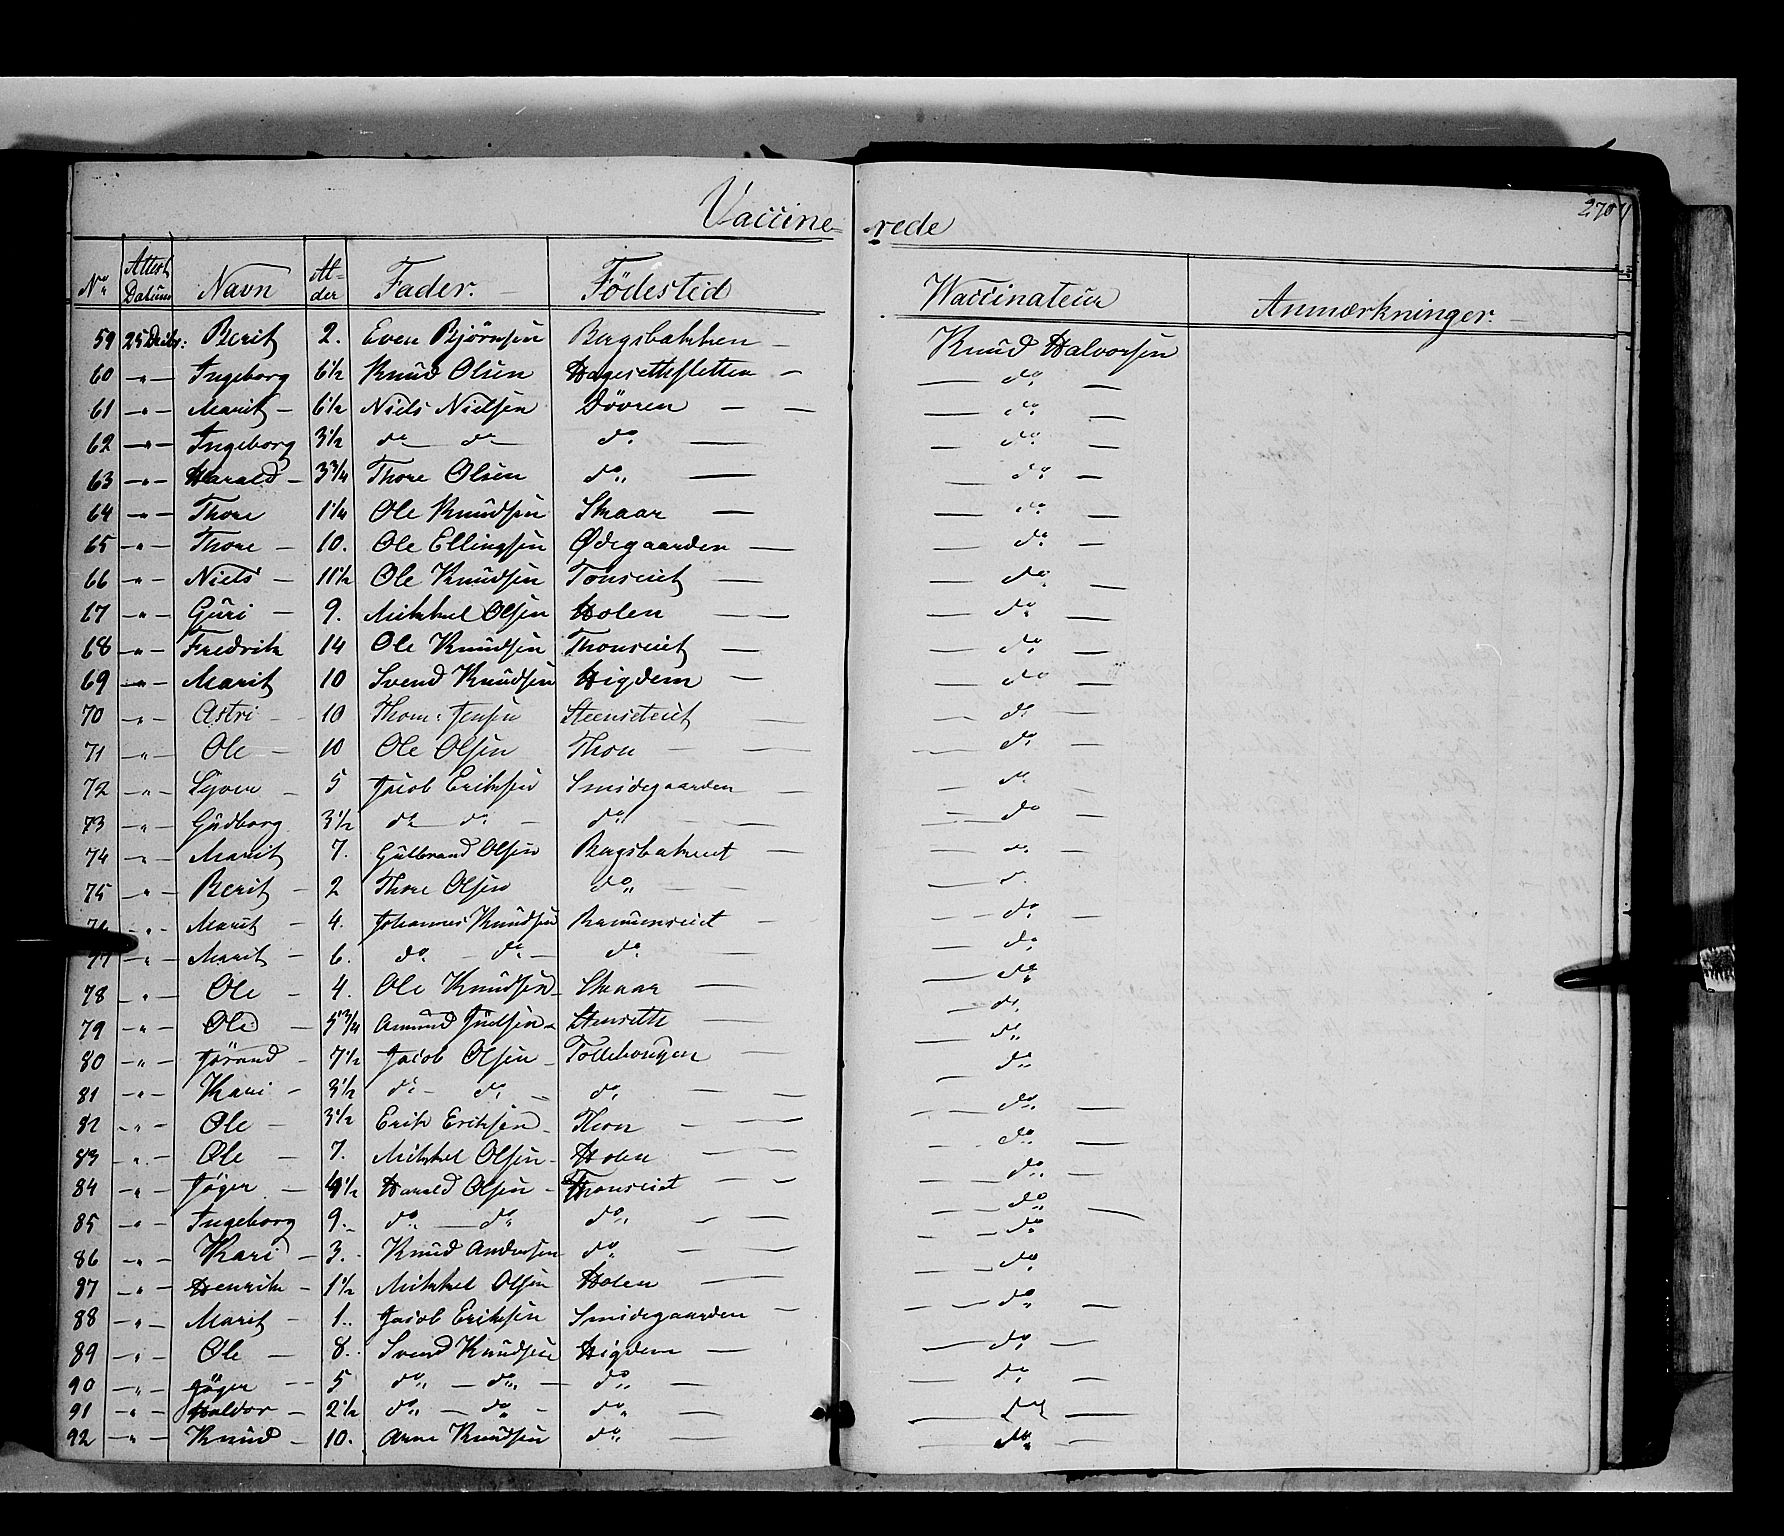 Vaccine-rede
270
No Attest Datum Navn Al-der Fader. Födested Waccinateur Anmærkninger.
59 25 Berit 2. Even Bjørnsen Bergsbakken — Knud Halvorsen
60 —"— Ingeborg 6½ Knud Olsen Hagesethsletten — do
61 —"— Marit 6½ Niels Nielsen Dövren — do
62 —"— Ingeborg 3½ do do do — do
63 —"— Harald 3¾ Thore Olsen do — do
64 —"— Thore 1¼ Ole Knudsen Skaar — do
65 —"— Thore 10. Ole Ellingsen Ødegaarden — do
66 —"— Niels 11½ Ole Knudsen Tonseiet — do
67 —"— Guri 9. Mikkel Olsen Holen — do
68 —"— Fredrik 14 Ole Knudsen Thonseiet — do
69 —"— Marit 10 Svend Knudsen Higdem — do
70 —"— Astri 10 Thom: Jensen Steenseteiet — do
71 —"— Ole 10 Ole Olsen Thon — do
72 —"— Syver 5 Jacob Eriksen Smidegaarden — do
73 —"— Gudborg 3½ do do do — do
74 —"— Marit 7. Gulbrand Olsen Bergsbakeiet — do
75 —"— Berit 2 Thore Olsen do — do
76 —"— Marit 4. Johannes Knudsen — do
77 —"— Marit 6. do do do — do
78 —"— Ole 4. Ole Knudsen Skaar — do
79 —"— Ole 5¾ Amund Stensette — do
80 —"— Jörand 7½ Jacob Olsen Tollehougen — do
81 —"— Kari 3½ do do do — do
82 —"— Ole 3½ Erik Eriksen Thon — do
83 —"— Ole 7. Mikkel Olsen Holen — do
84 —"— Jöger Harald Olsen Thonseiet — do
85 —"— Ingeborg 9. do do do — do
86 —"— Kari 3. Knud Andersen do — do
87 —"— Henrik 1½ Mikkel Olsen Holen — do
88 —"— Marit 1. Jacob Eriksen Smidegaarden — do
89 —"— Ole 8. Svend Knudsen Higdem — do
90 —"— Jöger 5 do do do — do
91 —"— Haldor 2½ do do do — do
92 —"— Knud 10. Arne Knudsen do — do